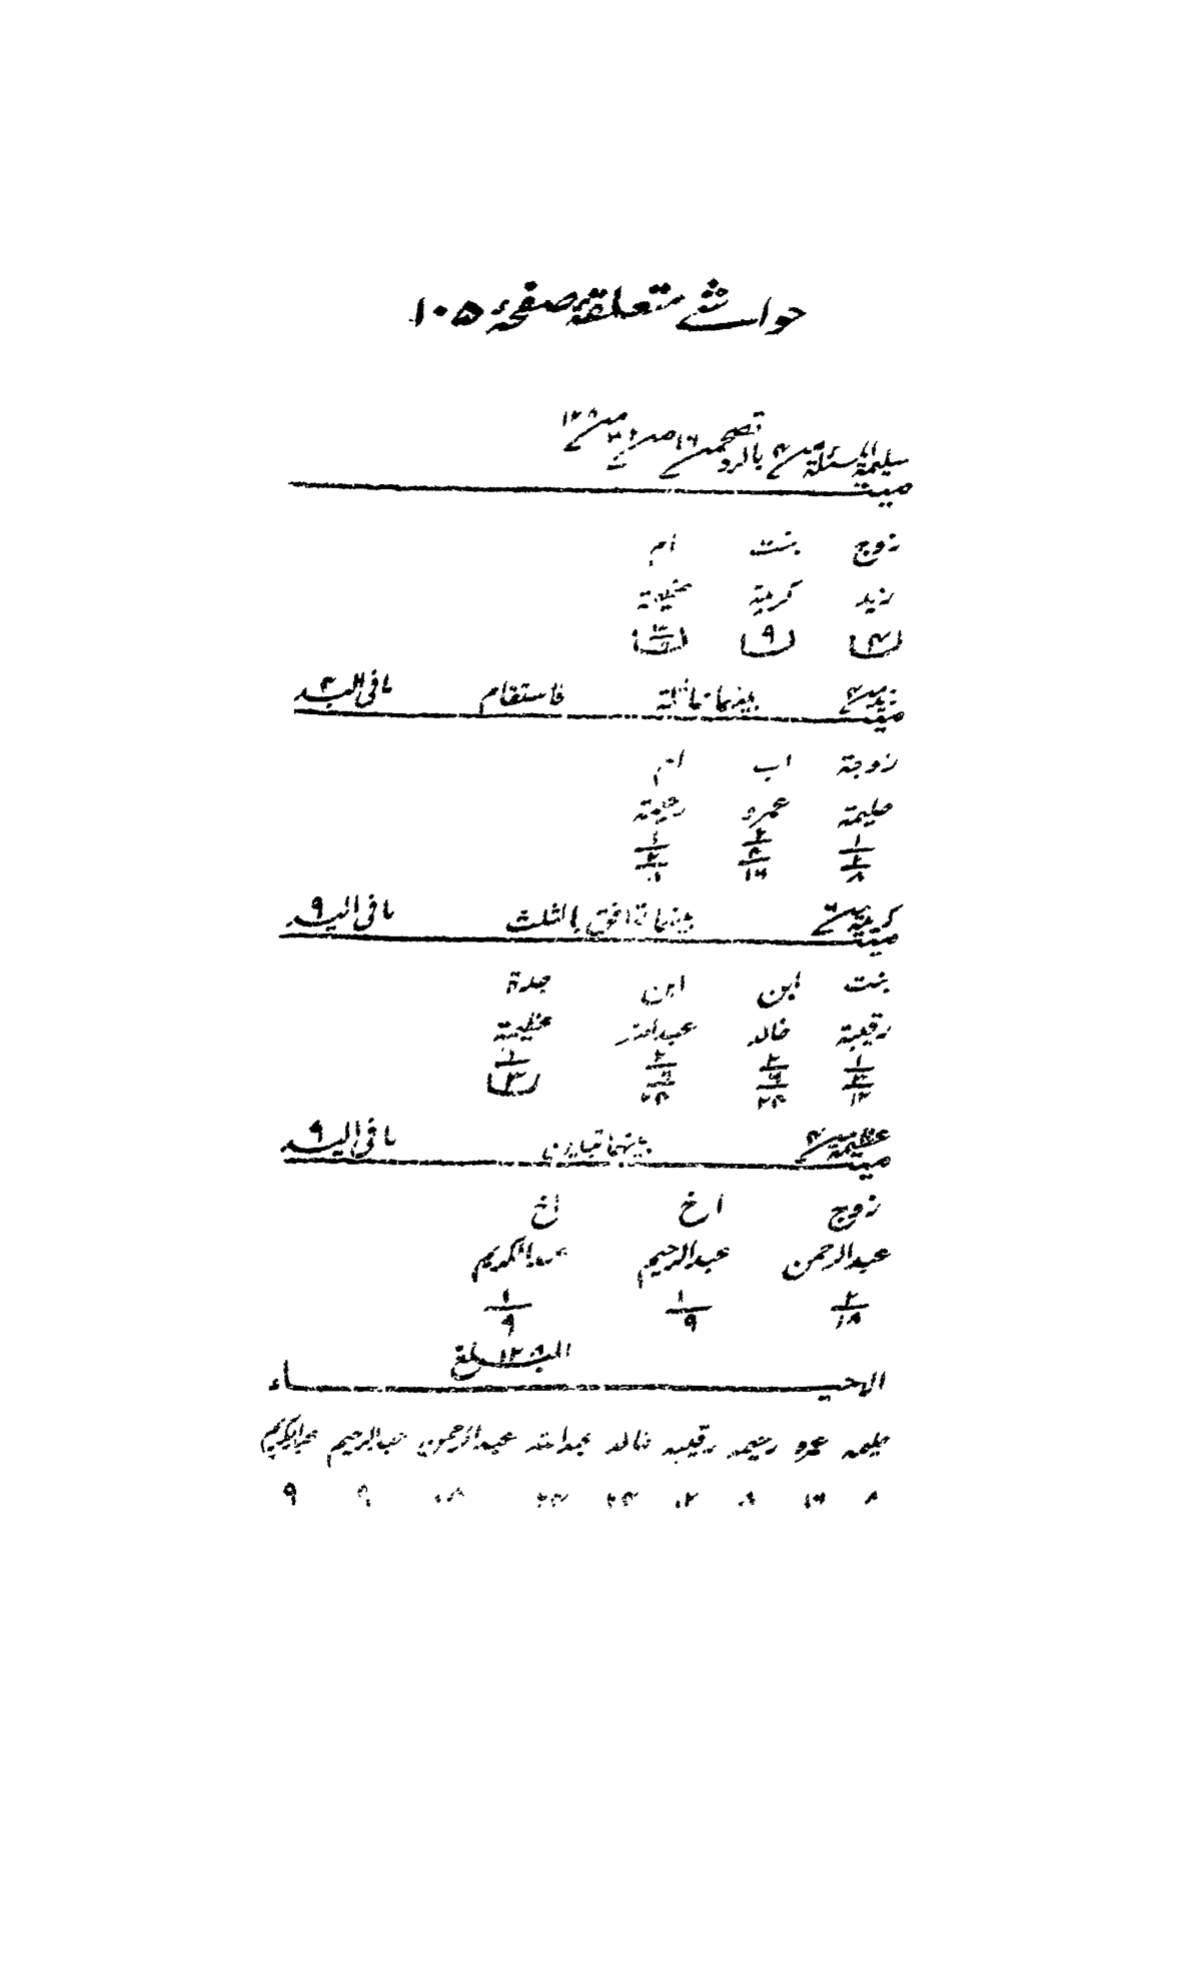 حواشے متعلقۂ صفحۂ ۱۰۵
سلیمۃ المسئلۃ من ۴ بالرد تصح من ۱۶ ۳۲ من ۱۲۸
میت
زوج بنت ام
زید کریمۃ عظیمۃ
۴ ۹ ۳
زید من ۴ بینھما مماثلۃ فاستقام مافی الید ۴
میت
زوجۃ اب ام
حلیمۃ عمرو رحیمۃ
۱ ۲ ۱
۲ ۴ ۲
۸ ۱۶ ۸
کریمۃ بینھما توافق بالثلث مافی الید ۹
میت
بنت ابن ابن جدۃ
رقیبۃ خالد عبداللہ عظیمۃ
۱ ۲ ۲ ۱
۳ ۶ ۶ ۳
۱۲ ۲۴ ۲۴
عظیمۃ من ۴ بینھما تباین مافی الید ۹
میت
زوج اخ اخ
عبدالرحمن عبدالرحیم عبدالکریم
۲ ۱ ۱
۱۸ ۹ ۹
المبلغ ۱۲۸
الاحیاء
حلیمہ عمرو رحیمہ رقیبہ خالد عبداللہ عبدالرحمن عبدالرحیم عبدالکریم
۸ ۱۶ ۸ ۱۲ ۲۴ ۲۴ ۱۸ ۹ ۹